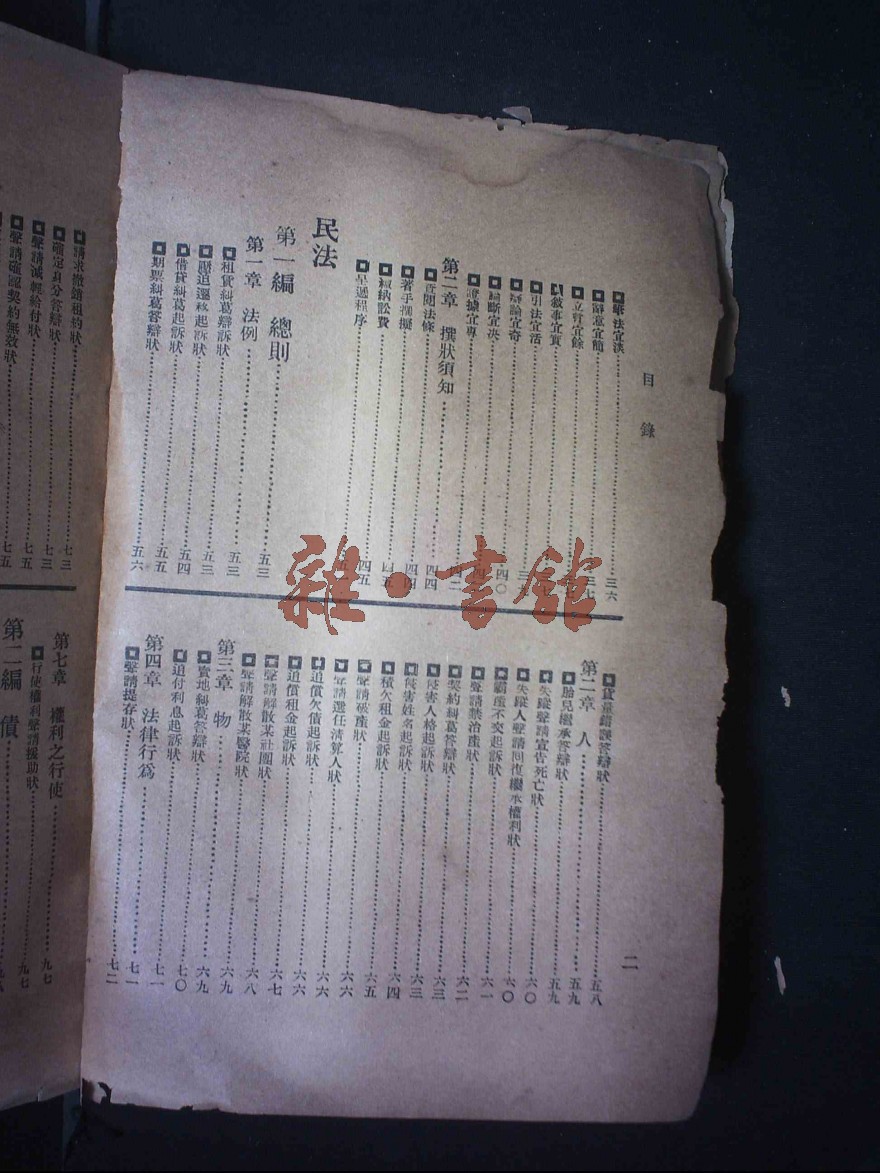 目錄
筆法宜淡……三六
辭意宜簡……三七
立質宜餘
敘事宜實
引法宜活
辯論宜奇
論斷宜决……四〇
證據宜專
第二章 撰狀須知……四二
查閱法條……四四
著手撰擬……四四
繳納訟費……四五
呈遞程序……四五
民法
第一編 總則……五三
第一章 法例……五三
租賃糾葛辯訴狀……五三
壓迫遷移起訴狀……五三
借貸糾葛起訴狀……五四
期票糾葛答辯狀……五六
貨量錯誤答辯狀……五八
第二章 人……五九
胎兒繼承答辯狀……五九
失蹤聲請宣告死亡狀……六〇
失蹤人聲請回復繼承權利狀……六〇
霸產不交起訴狀……六一
聲請禁治產狀……六一
契約糾葛答辯狀……六二
侵害人格起訴狀……六三
侵害姓名起訴狀……六三
積欠租金起訴狀……六四
聲請破產狀……六五
聲請選任清算人狀……六六
追償欠債起訴狀……六六
追償租金起訴狀……六六
聲請解散某社團狀……六七
聲請解散某醫院狀……六八
第三章 物……六九
賣地糾葛答辯狀……六九
追付利息起訴狀……七〇
第四章 法律行為……七一
聲請提存狀……七一
……七二
二
請求撤銷租約狀……七三
確定身分答辯狀……七三
聲請減輕給付狀……七五
聲請確認契約無效狀……七五
第七章 權利之行使……九七
行使權利聲請援助狀……九七
第二編 債
雜·書館